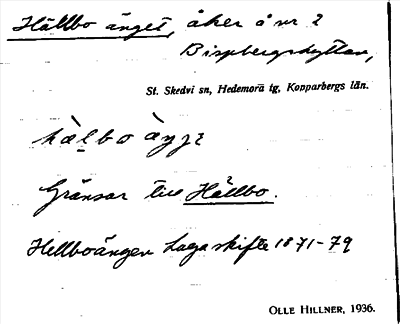 Hållbo änget, åker å nr 2
Bispbergshyttan,
St. Skedvi sn, Hedemora tg, Kopparbergs län.
Gränsar till Hållbo.
Hellboängen Laga skifte 1871-79
OLLE HILLNER, 1936.